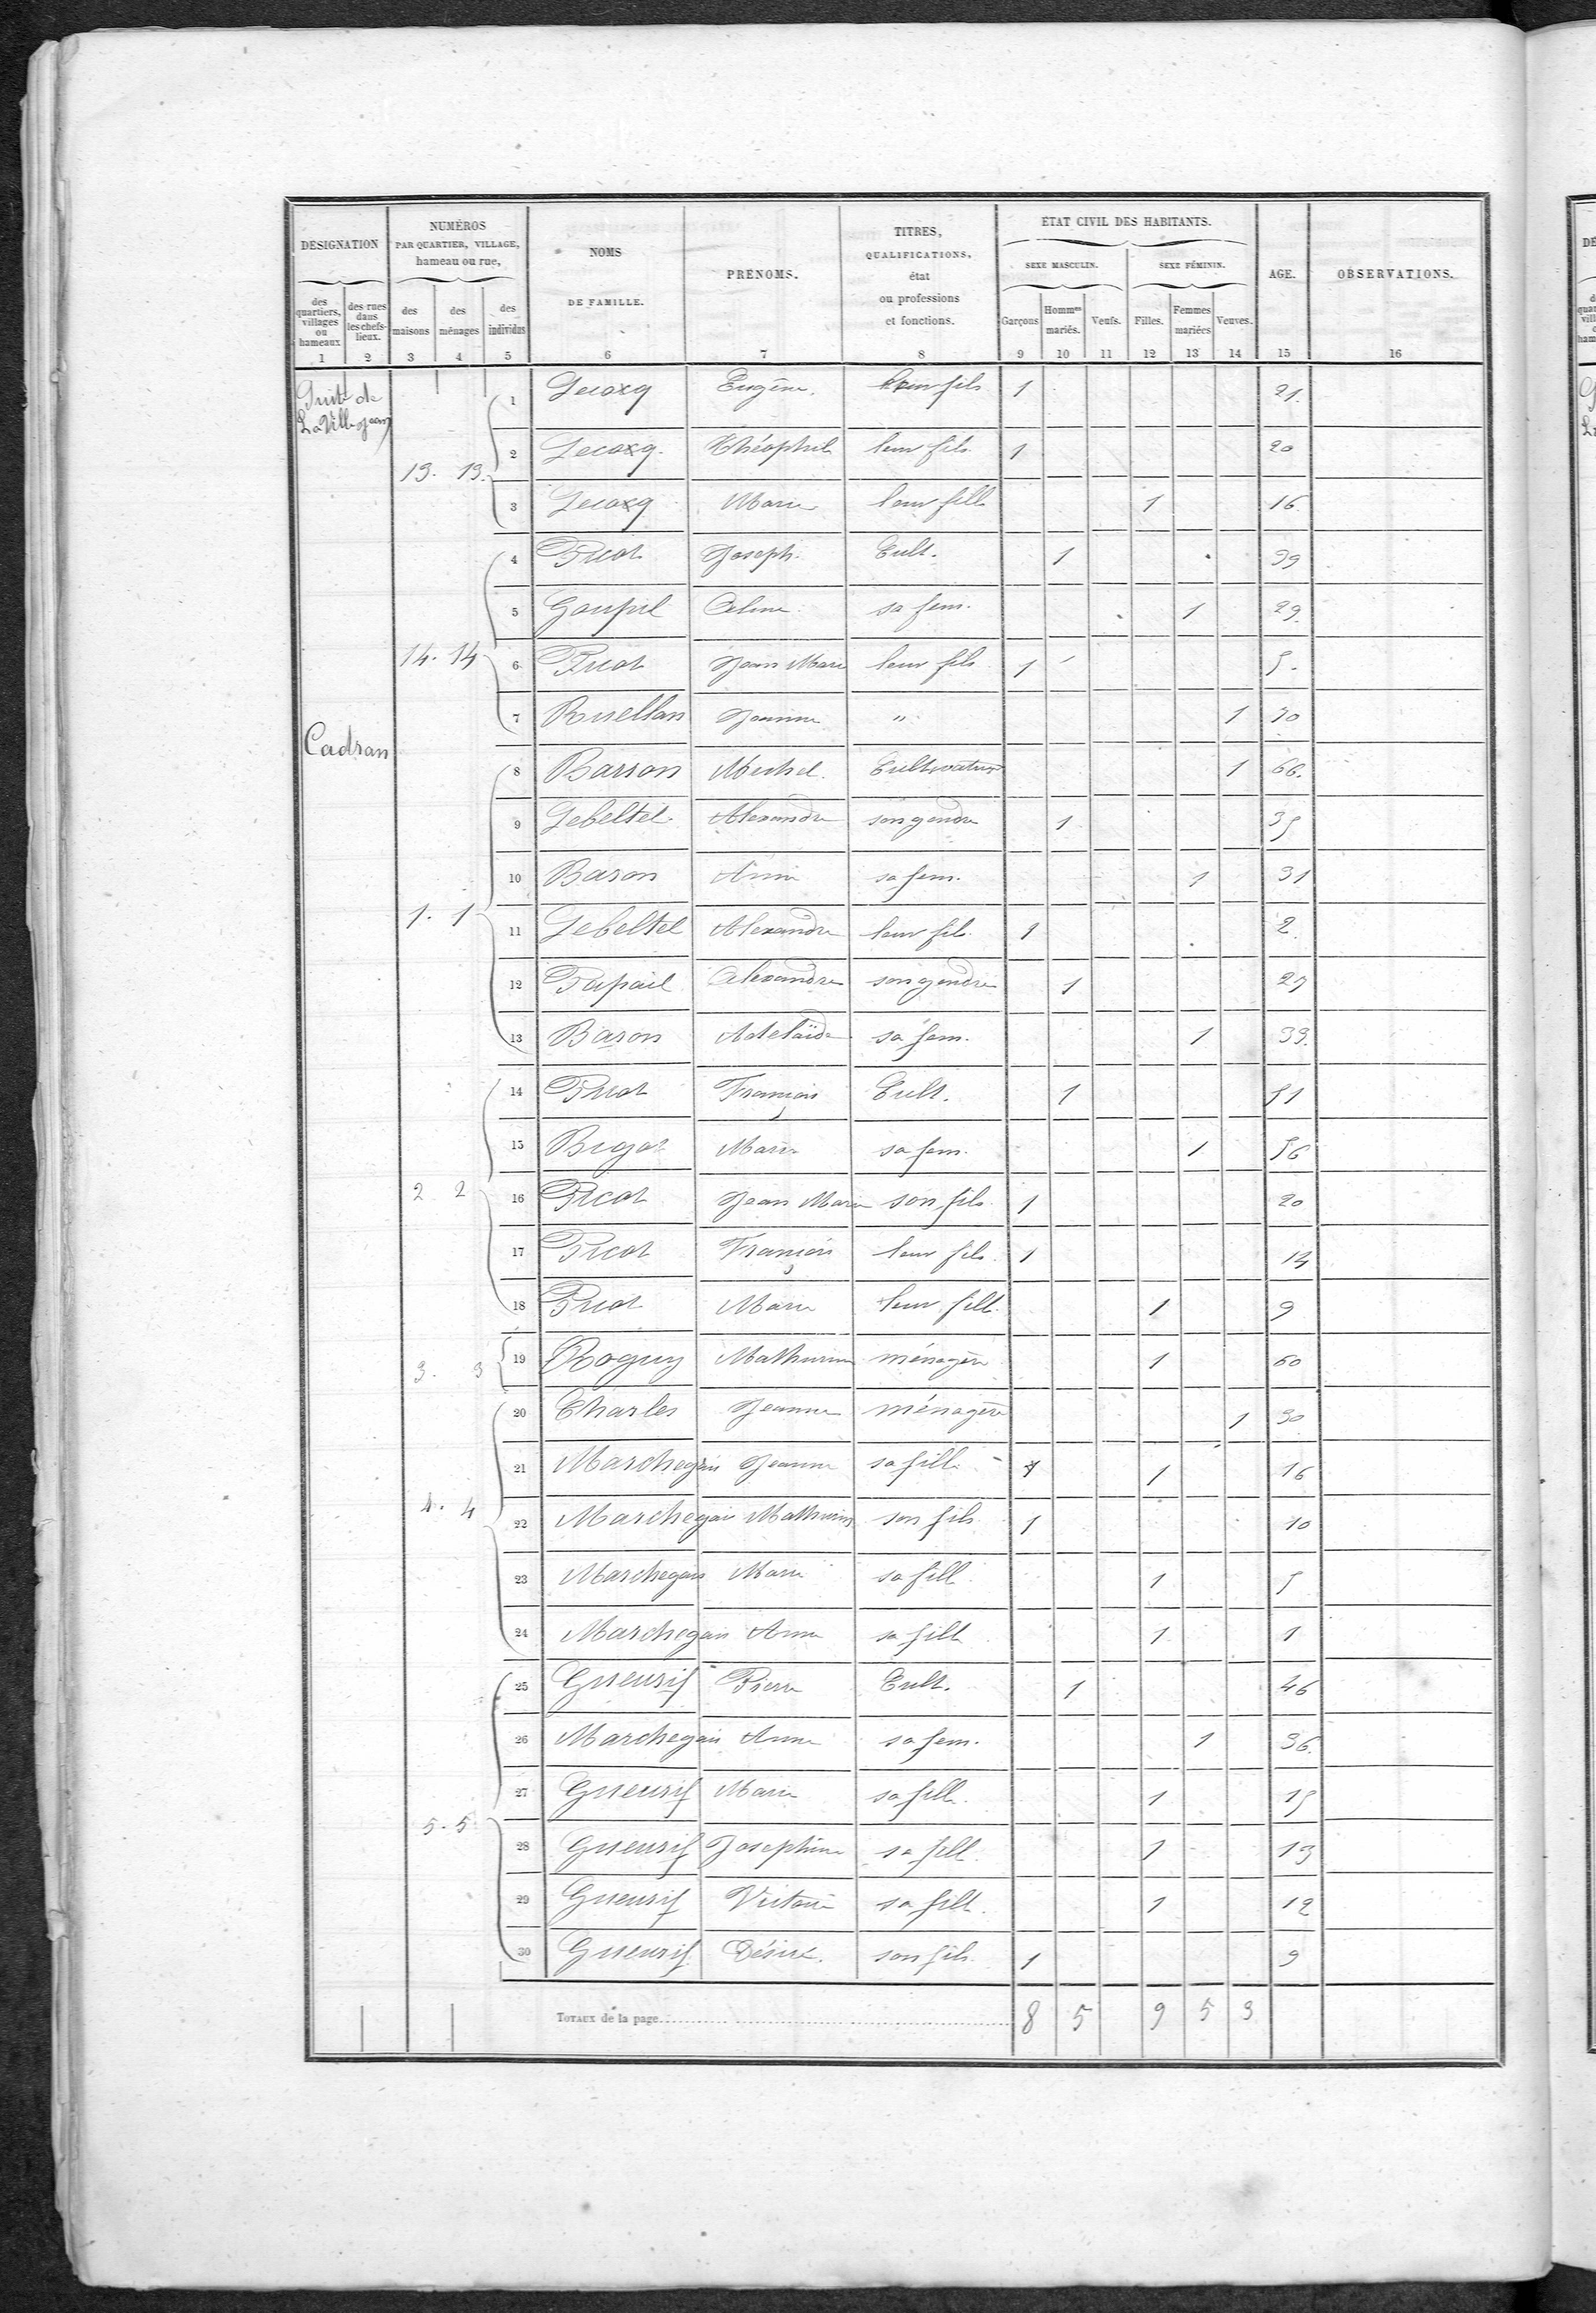 DESIGNATION
NUMÉROS PAR QUARTIER, VILLAGE, hameau ou rue,
NOMS DE FAMILLE.
PRÉNOMS.
TITRES, QUALIFICATIONS, état ou professions et fonctions.
ETAT CIVIL DES HABITANTS.
SEXE MASCULIN.
SEXE FÉMININ.
AGE.
OBSERVATIONS.
des quartiers, villages ou hameaux
des rues dans les chefs-lieux.
des maisons
des ménages
des individus
Garçons
Hommes mariés.
Veufs.
Filles.
Femmes mariées
Veuves.
1 2 3 4 5 6 7 8 9 10 11 12 13 14 15 16
Suite de La Ville Jean
1 Lecoxq Eugène. leur fils 1 21.
2 Lecoxq. Théophile leur fils 1 20
13. 13.
3 Lecoxq Marie leur fille 1 16
4 Picot Joseph Cult. 1 39
5 Goupil Celine sa fem. 1 29
14. 14
6 Picot Jean Marie leur fils 1 5.
7 Ruellan Jeanne " 1 30
Cadran
8 Barron Michel. Cultivateur 1 66.
9 Lebeltel Alexandre son gendre 1 35
10 Baron Anne sa fem. 1 31
1. 1
11 Lebeltel Alexandre leur fils. 1 2.
12 Papail Alexandre son gendre 1 29
13 Baron Adelaïde sa fem. 1 33.
14 Picot François Cult. 1 51
15 Bigot Marie sa fem. 1 56
2 2
16 Picot Jean Marie son fils 1 20
17 Picot François leur fils. 1 14
18 Picot Marie leur fille. 1 9
3. 3
19 Roguy Mathurine ménagère 1 60
20 Charles Jeanne ménagère 1 30
21 Marchegais Jeanne sa fille 1 16
4. 4
22 Marchegais Mathurin son fils 1 10
23 Marchegais Marie sa fille 1 5
24 Marchegais Anne sa fille 1 1
25 Gueurif Pierre Cult. 1 46
26 Marchegais Anne sa fem. 1 36.
27 Gueurif Marie sa fille. 1 15
5. 5
28 Gueurif Josephine sa fille. 1 13
29 Gueurif Victoire sa fille. 1 12
30 Gueurif Désiré. son fils 1 9
TOTAUX de la page 8 5 9 5 3